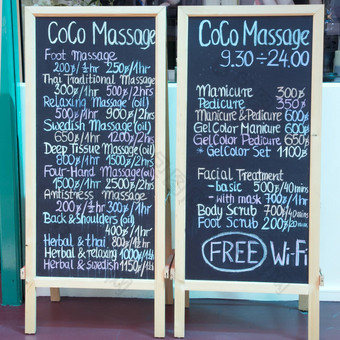 CoCo Massage
Foot Massage
200฿/½hr 250฿/1hr
Thai Traditional Massage
300฿/1hr 500฿/2hrs
Relaxing Massage (oil)
500฿/1hr 900฿/2hrs
Swedish Massage (oil)
650฿/1hr 1200฿/2hrs
Deep Tissue Massage (oil)
800฿/1hr 1500฿/2hrs
Four-Hand Massage (oil)
1500฿/1hr 2500฿/2hrs
Antistress Massage
200฿/½hr 300฿/1hr
Back & Shoulders (oil)
400฿/1hr
Herbal & thai 800฿/1½hr
Herbal & relaxing 1000฿/1½hr
Herbal & swedish 1150฿/1½hr
CoCo Massage
9.30÷24.00
Manicure 300฿
Pedicure 350฿
Manicure & Pedicure 600฿
Gel Color Manicure 600฿
Gel Color Pedicure 650฿
* Gel Color Set 1100฿
Facial Treatment
-basic 500฿/40mins
-with mask 700฿/1hr
Body Scrub 700฿/40mins
Foot Scrub 200฿/20mins
FREE Wi-Fi